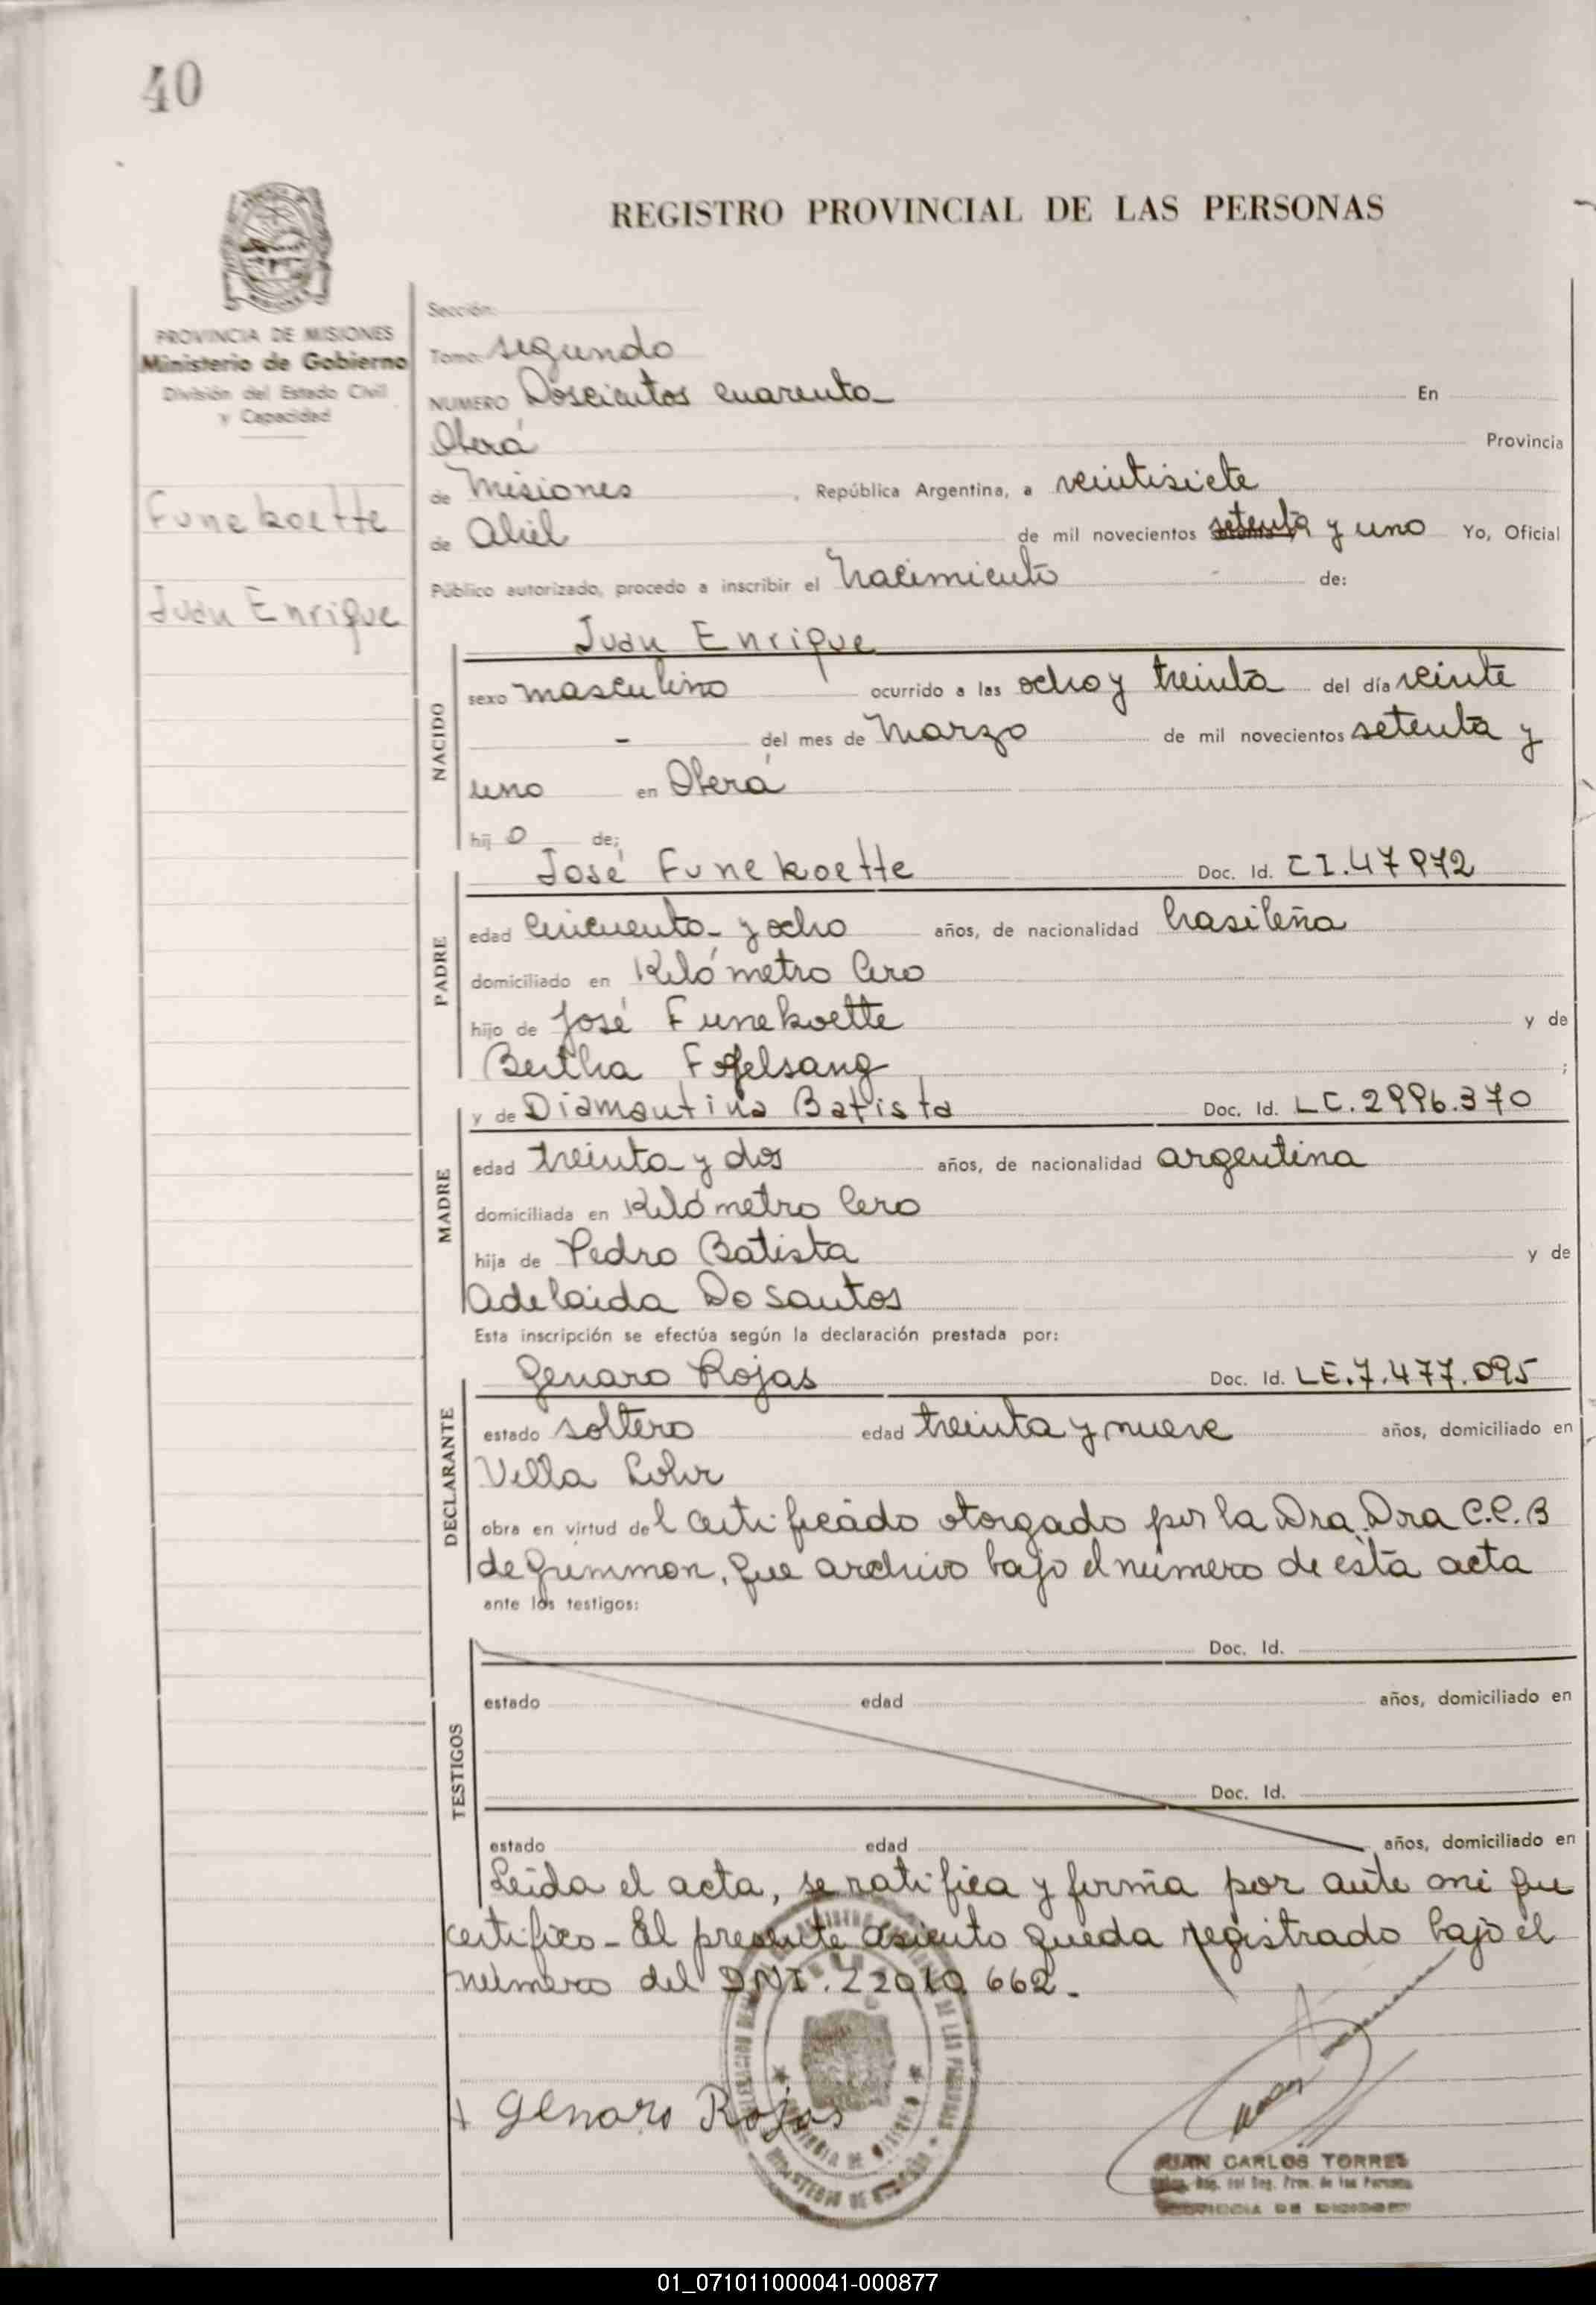 40
REGISTRO PROVINCIAL DE LAS PERSONAS
PROVINCIA DE MISIONES
Ministerio de Gobierno
División del Estado Civil
y Capacidad
Funekoette
Juan Enrique
Sección:
Tomo: segundo
NUMERO Doscientos cuarenta En
Oberá Provincia
de Misiones, República Argentina, a veintisiete
de Abril de mil novecientos setenta y uno Yo, Oficial
Público autorizado, procedo a inscribir el nacimiento de:
NACIDO
Juan Enrique
sexo masculino ocurrido a las ocho y treinta del día veinte
- del mes de Marzo de mil novecientos setenta y
uno en Oberá
hij o de;
PADRE
José Funekoette Doc. Id. CI.47972
edad cincuenta y ocho años, de nacionalidad brasileña
domiciliado en Kilómetro Cero
hijo de José Funekoette y de
Bertha Fogelsang ;
MADRE
y de Diamantina Batista Doc. Id. LC.2996.370
edad treinta y dos años, de nacionalidad argentina
domiciliada en Kilómetro Cero
hija de Pedro Batista y de
Adelaida Do Santos
Esta inscripción se efectúa según la declaración prestada por:
DECLARANTE
Genaro Rojas Doc. Id. LE.7.477.095
estado soltero edad treinta y nueve años, domiciliado en
Villa Lohr
obra en virtud del certificado otorgado por la Dra. Dra C.C.B
de Grimmon, que archivo bajo el número de esta acta
ante los testigos:
TESTIGOS
Doc. Id.
estado edad años, domiciliado en
Doc. Id.
estado edad años, domiciliado en
Leida el acta, se ratifica y firma por ante mi que
certifico - El presente asiento queda registrado bajo el
número del DNI. 22010 662.-
Genaro Rojas
JUAN CARLOS TORRES
Reg. Prov. de las Personas
01_071011000041-000877